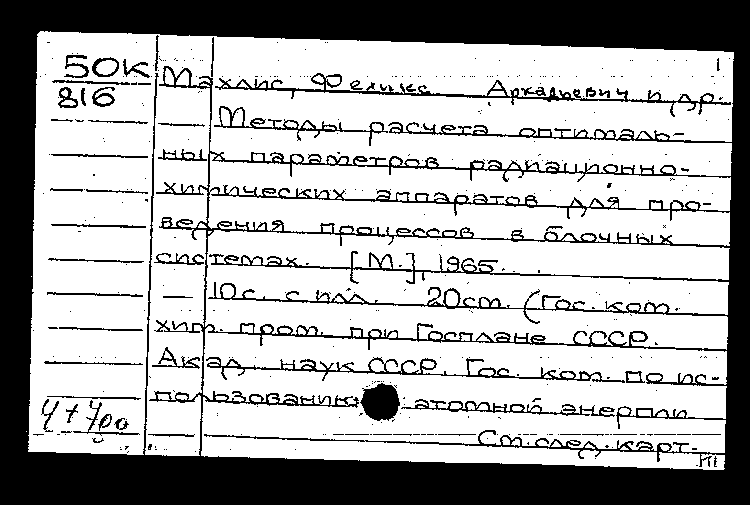 1
50К
816
Махлис, Феликс Аркадьевич и др.
Методы расчета оптималь-
ных параметров радиационно-
химических аппаратов для про-
ведения процессов в блочных
системах. [М.], 1965.
— 10 с. с илл. 20 см. (Гос. ком.
хим. пром. при Госплане СССР.
Акад. наук СССР. Гос. ком. по ис-
пользованию атомной энергии
См. след. карт.